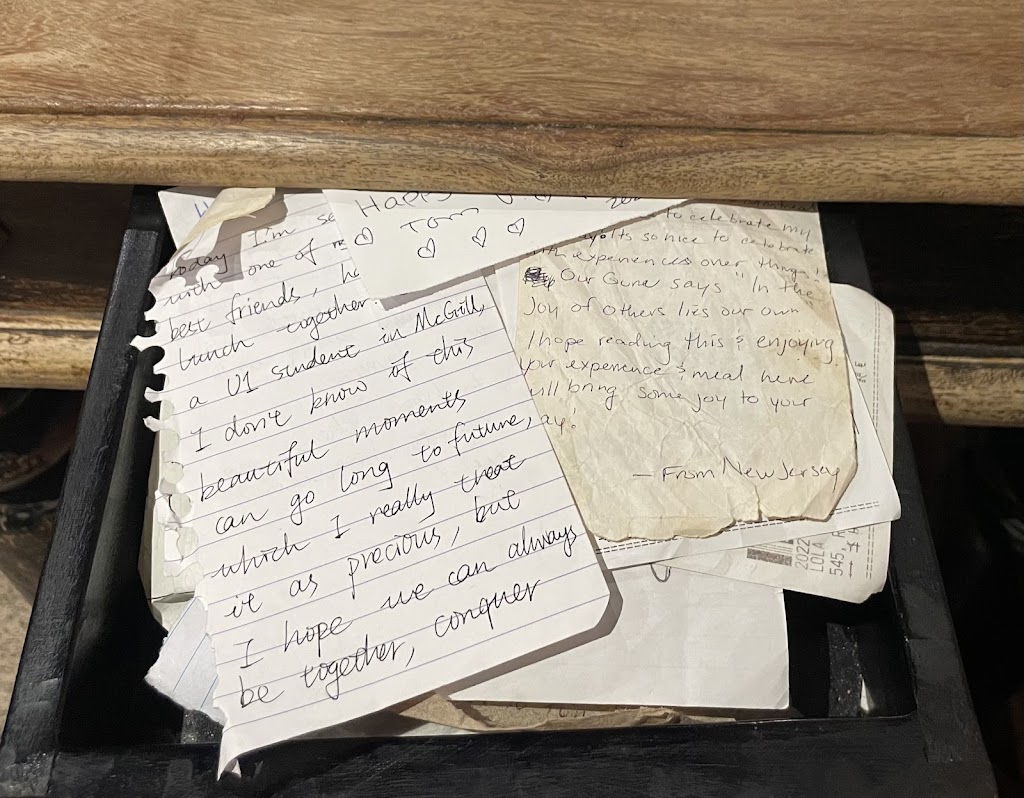 Today I'm se
with one of
best friends, ha
lunch together.
a U1 student in McGill,
I don't know of this
beautiful moments
can go long to future,
which I really treat
it as precious, but
I hope we can always
be together, conquer
Happ
Tom
to celebrate my
Its so nice to celebrate
with experiences over things!
Our Guru says "In the
Joy of others lies our own
I hope reading this & enjoying
your experience & meal here
will bring some joy to your
ay!
— From New Jersey
2022
LOLA
545, R